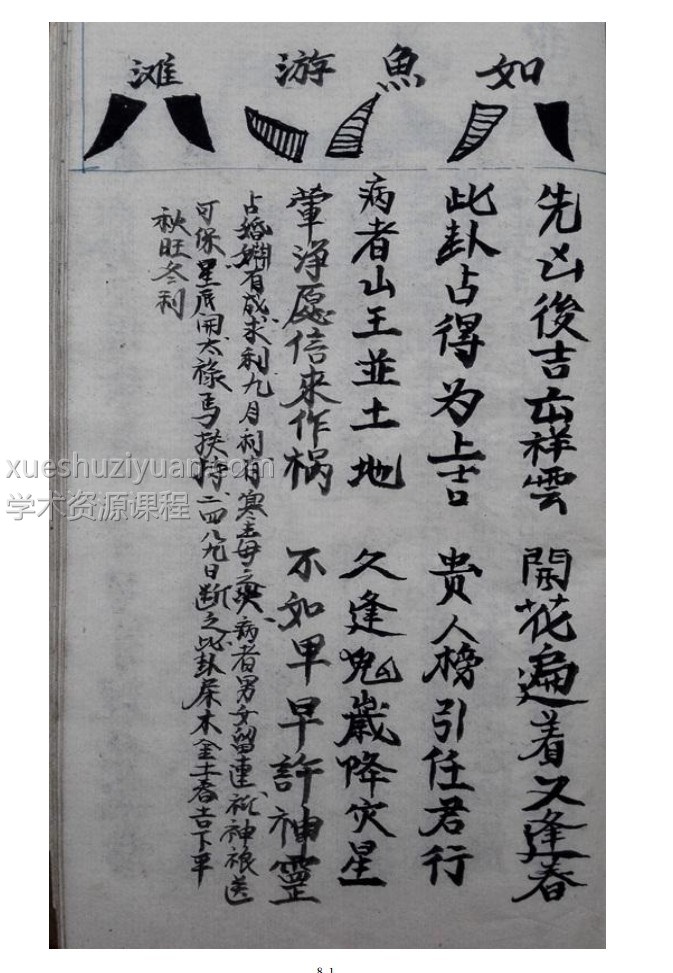 如魚游滩
先凶後吉云祥雲 開花遍着又逢春
此卦占得为上吉 贵人榜引任君行
病者山王並土地 久逢鬼嵗降灾星
葷净愿信來作祸 不如早早許神靈
占婚姻有成求利九月利有寒毒之病者男女留連神襐送
可保星辰開太祿马扶持二四八九日断之此卦属木金土春吉下平
秋旺冬利
xueshuziyuan.com
学术资源课程
8 1